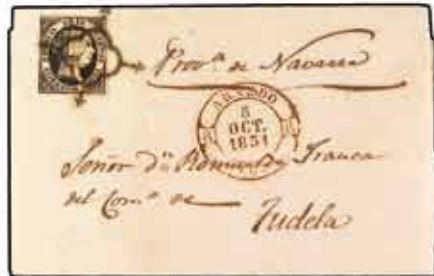 Prov.ª de Navarra
ARNEDO
5
OCT.
1851
Señor d.n Romualdo Franca
del Com.o de
Tudela